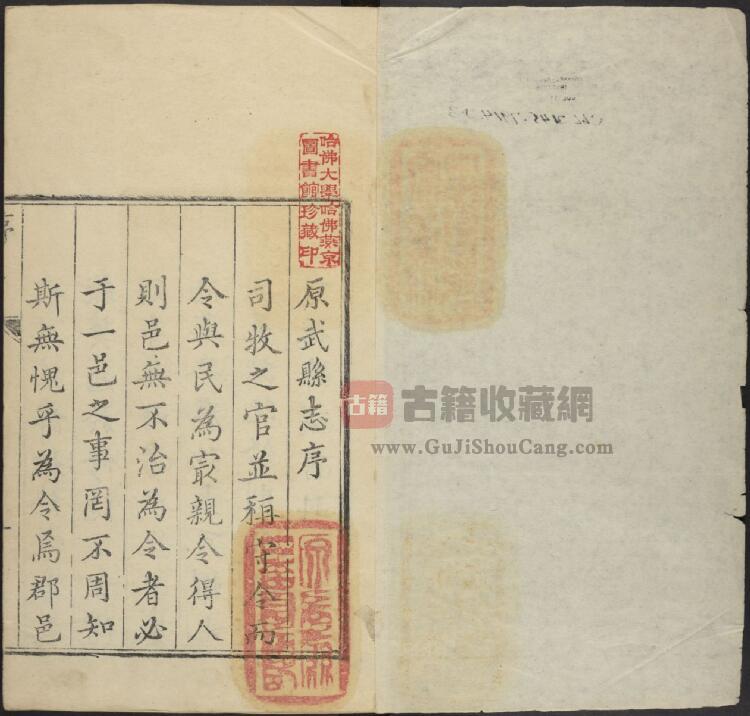 原武縣志序
司牧之官並稱守令而
令與民為㝡親令得人
則邑無不治為令者必
于一邑之事罔不周知
斯無愧乎為令焉郡邑
哈佛大學哈佛燕京
圖書館珍藏印
古籍
古籍收藏網
www.GuJiShouCang.com